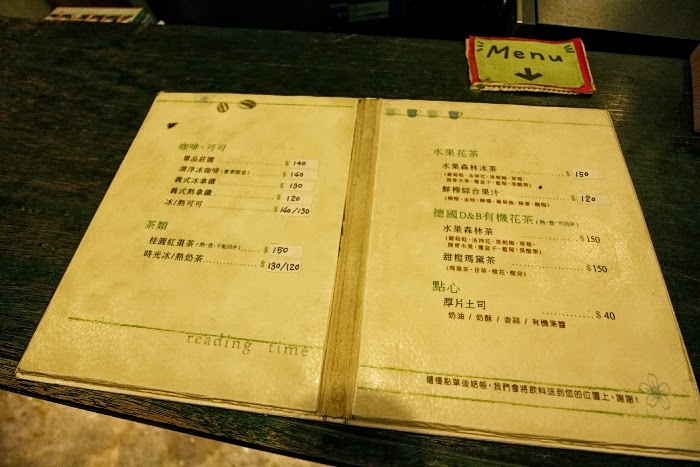 Menu
咖啡·可可
單品莊園 $ 140
漂浮冰咖啡(夏季限定) $ 140
義式冰拿鐵 $ 130
義式熱拿鐵 $ 120
冰/熱可可 $ 140/130
茶類
桂圓紅棗茶(熱·壺·不能回沖) $ 150
時光冰/熱奶茶 $ 130/120
reading time
水果花茶
水果森林冰茶 $ 150
鮮榨綜合果汁 $ 120
德國D&B有機花茶(熱·壺·可回沖)
水果森林茶 $150
甜橙瑪黛茶 $150
(瑪黛茶、甘草、橙花、橙皮)
點心
厚片土司 $ 40
奶油 / 奶酥 / 香蒜 / 有機果醬
櫃檯點菜後結帳,我們會將飲料送到您的位置上,謝謝!